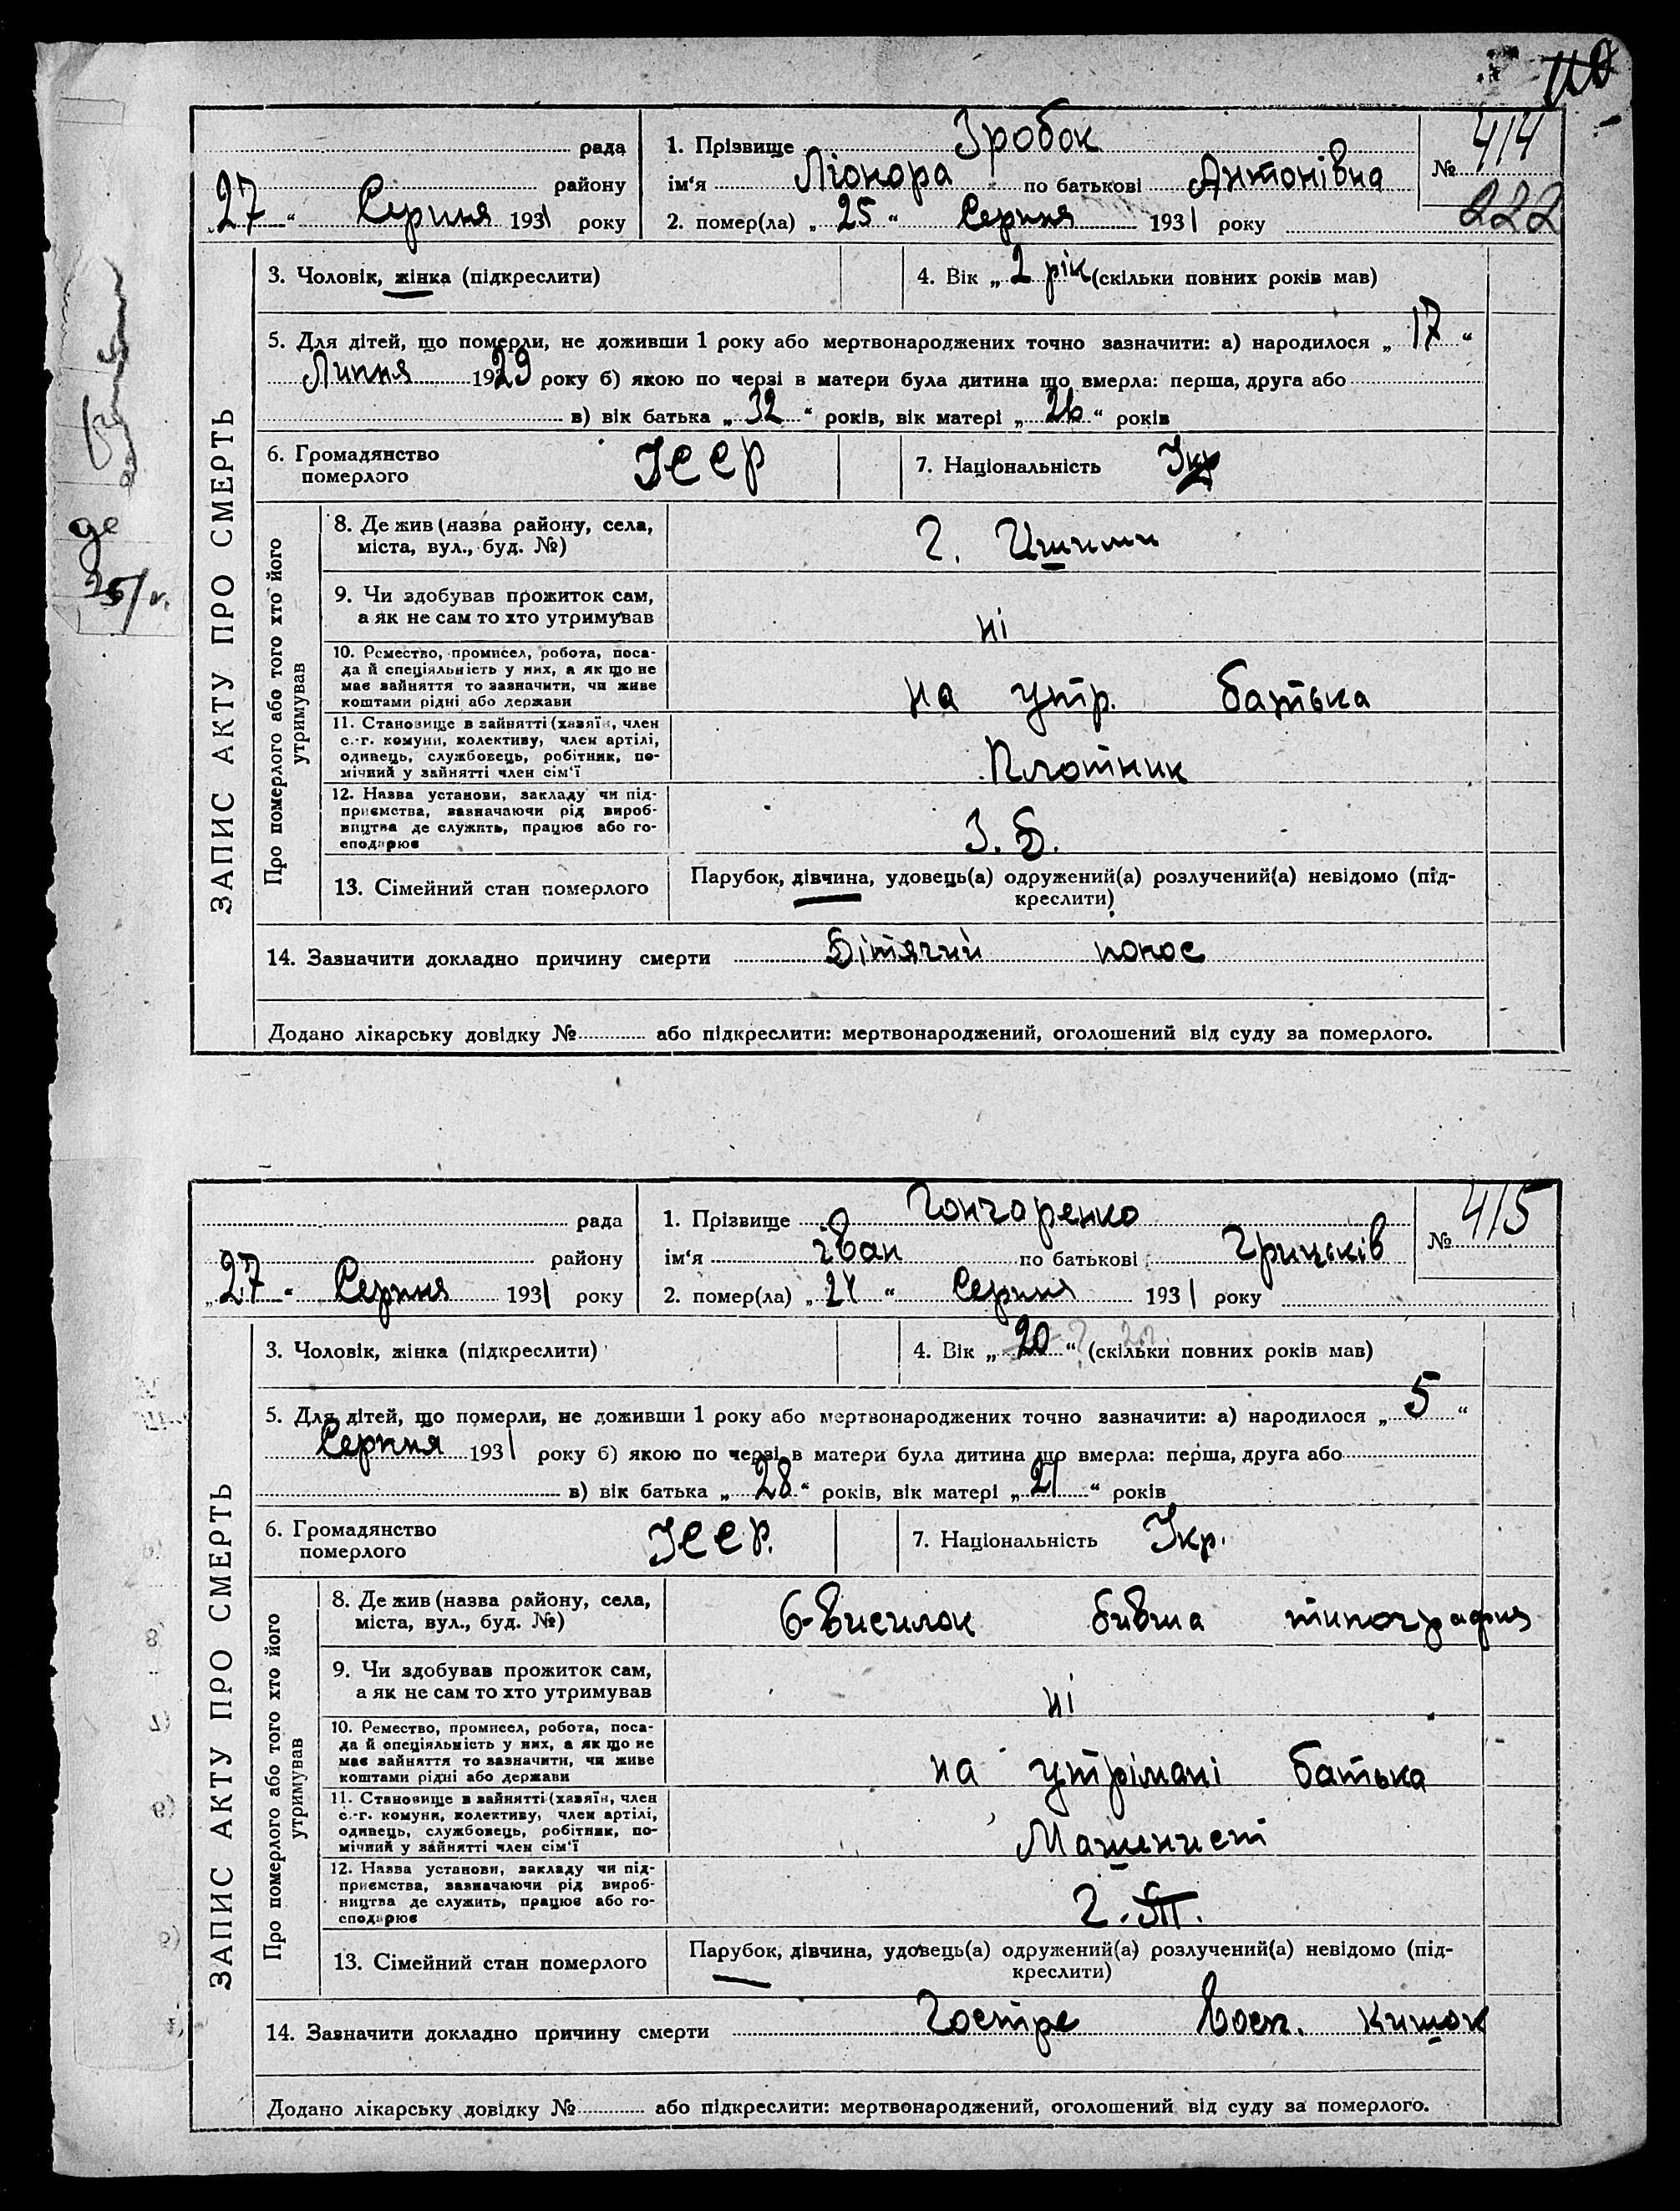 110
рада
1. Прізвище Зробок
№ 414
району
ім'я Ліонора по батькові Антонівна
222
„27“ Серпня 1931 року
2. помер(ла) „25“ Серпня 1931 року
3. Чоловік, жінка (підкреслити)
4. Вік „2 рік (скільки повних років мав)
5. Для дітей, що померли, не доживши 1 року або мертвонароджених точно зазначити: а) народилося „17“
Липня 1929 року б) якою по черзі в матери була дитина що вмерла: перша, друга або
в) вік батька „32“ років, вік матері „26“ років
6. Громадянство
померлого
УССР
7. Національність Укр
ЗАПИС АКТУ ПРО СМЕРТЬ
Про померлого або того хто його
утримував
8. Де жив (назва району, села,
міста, вул., буд. №)
9. Чи здобував прожиток сам,
а як не сам то хто утримував
ні
10. Ремество, промисел, робота, поса-
да й спеціяльність у них, а як що не
має зайняття то зазначити, чи живе
коштами рідні або держави
на утр. батька
11. Становище в зайнятті (хазяїн, член
с.-г. комуни, колективу, член артілі,
одинець, службовець, робітник, по-
мічний у зайнятті член сім'ї
Плотник
12. Назва установи, закладу чи під-
приємства, зазначаючи рід вироб-
ництва де служить, працює або го-
сподарює
З. Б.
13. Сімейний стан померлого
Парубок, дівчина, удовець(а) одружений(а) розлучений(а) невідомо (під-
креслити)
14. Зазначити докладно причину смерти Дітячий понос
Додано лікарську довідку № або підкреслити: мертвонароджений, оголошений від суду за померлого.
рада
1. Прізвище Гончаренко
№ 415
району
ім'я іван по батькові Грицьків
„27“ Серпня 1931 року
2. помер(ла) „24“ Серпня 1931 року
3. Чоловік, жінка (підкреслити)
4. Вік „20“ (скільки повних років мав)
5. Для дітей, що померли, не доживши 1 року або мертвонароджених точно зазначити: а) народилося „5“
Серпня 1931 року б) якою по черзі в матери була дитина що вмерла: перша, друга або
в) вік батька „28“ років, вік матері „21“ років
6. Громадянство
померлого
УССР.
7. Національність Укр.
ЗАПИС АКТУ ПРО СМЕРТЬ
Про померлого або того хто його
утримував
8. Де жив (назва району, села,
міста, вул., буд. №)
6-висилок бивша типография
9. Чи здобував прожиток сам,
а як не сам то хто утримував
ні
10. Ремество, промисел, робота, поса-
да й спеціяльність у них, а як що не
має зайняття то зазначити, чи живе
коштами рідні або держави
на утрімані батька
11. Становище в зайнятті (хазяїн, член
с.-г. комуни, колективу, член артілі,
одинець, службовець, робітник, по-
мічний у зайнятті член сім'ї
Машинист
12. Назва установи, закладу чи під-
приємства, зазначаючи рід вироб-
ництва де служить, працює або го-
сподарює
13. Сімейний стан померлого
Парубок, дівчина, удовець(а) одружений(а) розлучений(а) невідомо (під-
креслити)
14. Зазначити докладно причину смерти Гостре восп. кишок
Додано лікарську довідку № або підкреслити: мертвонароджений, оголошений від суду за померлого.